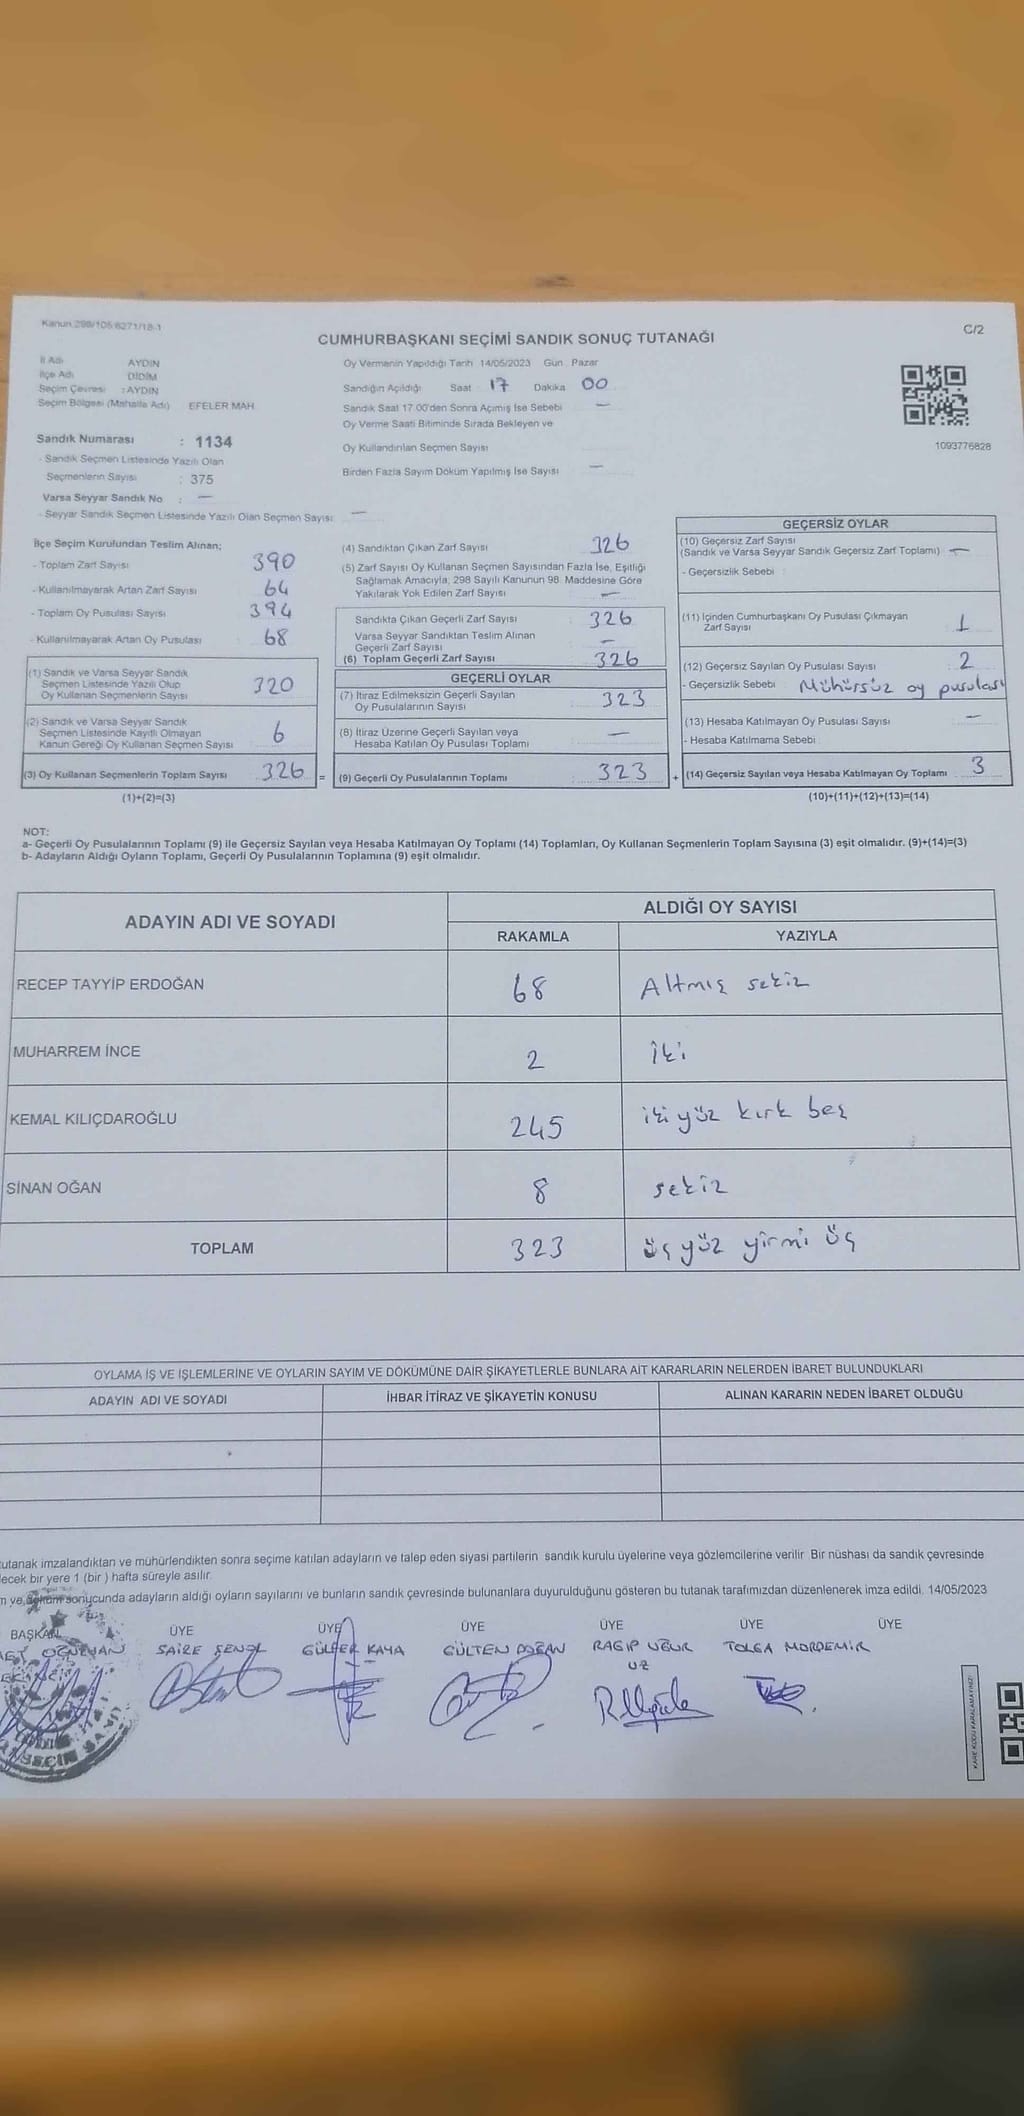 Kanun 298/105 6271/18-1
C/2
CUMHURBAŞKANI SEÇİMİ SANDIK SONUÇ TUTANAĞI
İl Adı AYDIN
İlçe Adı DİDİM
Seçim Çevresi : AYDIN
Seçim Bölgesi (Mahalle Adı) EFELER MAH
Sandık Numarası : 1134
- Sandık Seçmen Listesinde Yazılı Olan
Seçmenlerin Sayısı : 375
Varsa Seyyar Sandık No : —
- Seyyar Sandık Seçmen Listesinde Yazılı Olan Seçmen Sayısı —
Oy Vermenin Yapıldığı Tarih 14/05/2023 Gün Pazar
Sandığın Açıldığı Saat 17 Dakika 00
Sandık Saat 17.00'den Sonra Açımış İse Sebebi —
Oy Verme Saati Bitiminde Sırada Bekleyen ve
Oy Kullandırılan Seçmen Sayısı
Birden Fazla Sayım Döküm Yapılmış İse Sayısı —
1093776828
İlçe Seçim Kurulundan Teslim Alınan;
- Toplam Zarf Sayısı 390
- Kullanılmayarak Artan Zarf Sayısı 64
- Toplam Oy Pusulası Sayısı 394
- Kullanılmayarak Artan Oy Pusulası 68
(1) Sandık ve Varsa Seyyar Sandık
Seçmen Listesinde Yazılı Olup
Oy Kullanan Seçmenlerin Sayısı 320
(2) Sandık ve Varsa Seyyar Sandık
Seçmen Listesinde Kayıtlı Olmayan
Kanun Gereği Oy Kullanan Seçmen Sayısı 6
(3) Oy Kullanan Seçmenlerin Toplam Sayısı 326 =
(1)+(2)=(3)
(4) Sandıktan Çıkan Zarf Sayısı 326
(5) Zarf Sayısı Oy Kullanan Seçmen Sayısından Fazla İse, Eşitliği
Sağlamak Amacıyla, 298 Sayılı Kanunun 98. Maddesine Göre
Yakılarak Yok Edilen Zarf Sayısı —
Sandıkta Çıkan Geçerli Zarf Sayısı 326
Varsa Seyyar Sandıktan Teslim Alınan
Geçerli Zarf Sayısı —
(6) Toplam Geçerli Zarf Sayısı 326
GEÇERLİ OYLAR
(7) İtiraz Edilmeksizin Geçerli Sayılan
Oy Pusulalarının Sayısı 323
(8) İtiraz Üzerine Geçerli Sayılan veya
Hesaba Katılan Oy Pusulası Toplamı —
(9) Geçerli Oy Pusulalarının Toplamı : 323 +
GEÇERSİZ OYLAR
(10) Geçersiz Zarf Sayısı
(Sandık ve Varsa Seyyar Sandık Geçersiz Zarf Toplamı) —
- Geçersizlik Sebebi
(11) İçinden Cumhurbaşkanı Oy Pusulası Çıkmayan
Zarf Sayısı 1
(12) Geçersiz Sayılan Oy Pusulası Sayısı : 2
- Geçersizlik Sebebi Mühürsüz oy pusulası
(13) Hesaba Katılmayan Oy Pusulası Sayısı —
- Hesaba Katılmama Sebebi
(14) Geçersiz Sayılan veya Hesaba Katılmayan Oy Toplamı 3
(10)+(11)+(12)+(13)=(14)
NOT:
a- Geçerli Oy Pusulalarının Toplamı (9) ile Geçersiz Sayılan veya Hesaba Katılmayan Oy Toplamı (14) Toplamları, Oy Kullanan Seçmenlerin Toplam Sayısına (3) eşit olmalıdır. (9)+(14)=(3)
b- Adayların Aldığı Oyların Toplamı, Geçerli Oy Pusulalarının Toplamına (9) eşit olmalıdır.
ADAYIN ADI VE SOYADI ALDIĞI OY SAYISI
RAKAMLA YAZIYLA
RECEP TAYYİP ERDOĞAN 68 Altmış sekiz
MUHARREM İNCE 2 İki
KEMAL KILIÇDAROĞLU 245 iki yüz kırk beş
SİNAN OĞAN 8 sekiz
TOPLAM 323 üç yüz yirmi üç
OYLAMA İŞ VE İŞLEMLERİNE VE OYLARIN SAYIM VE DÖKÜMÜNE DAİR ŞİKAYETLERLE BUNLARA AİT KARARLARIN NELERDEN İBARET BULUNDUKLARI
ADAYIN ADI VE SOYADI İHBAR İTİRAZ VE ŞİKAYETİN KONUSU ALINAN KARARIN NEDEN İBARET OLDUĞU
tutanak imzalandıktan ve mühürlendikten sonra seçime katılan adayların ve talep eden siyasi partilerin sandık kurulu üyelerine veya gözlemcilerine verilir Bir nüshası da sandık çevresinde
lecek bir yere 1 (bir ) hafta süreyle asılır.
ve döküm sonucunda adayların aldığı oyların sayılarını ve bunların sandık çevresinde bulunanlara duyurulduğunu gösteren bu tutanak tarafımızdan düzenlenerek imza edildi. 14/05/2023
BAŞKAN ÜYE ÜYE ÜYE ÜYE ÜYE ÜYE
SAİRE ŞENOL GÜLFER KAYA GÜLTEN DOĞAN RAGIP UĞUR TOLGA MORDEMİR
UZ
KARE KODU KARALAMAYINIZ!